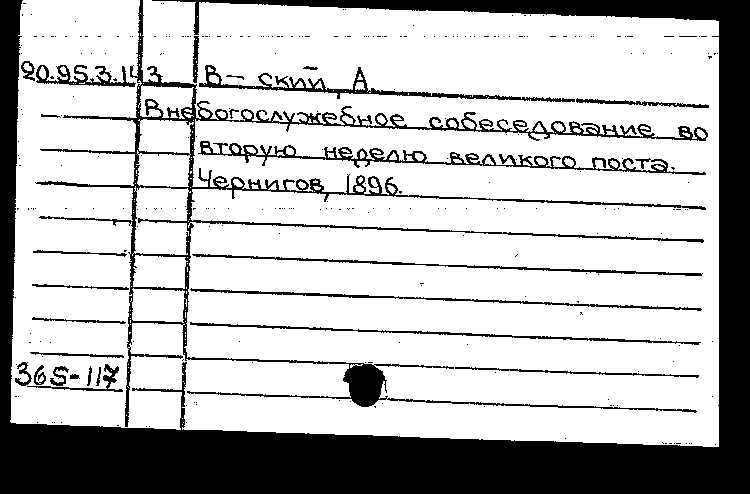 20.95.3.143 В-ский, А.
Внебогослужебное собеседование во
вторую неделю великого поста.
Чернигов, 1896.
365-117